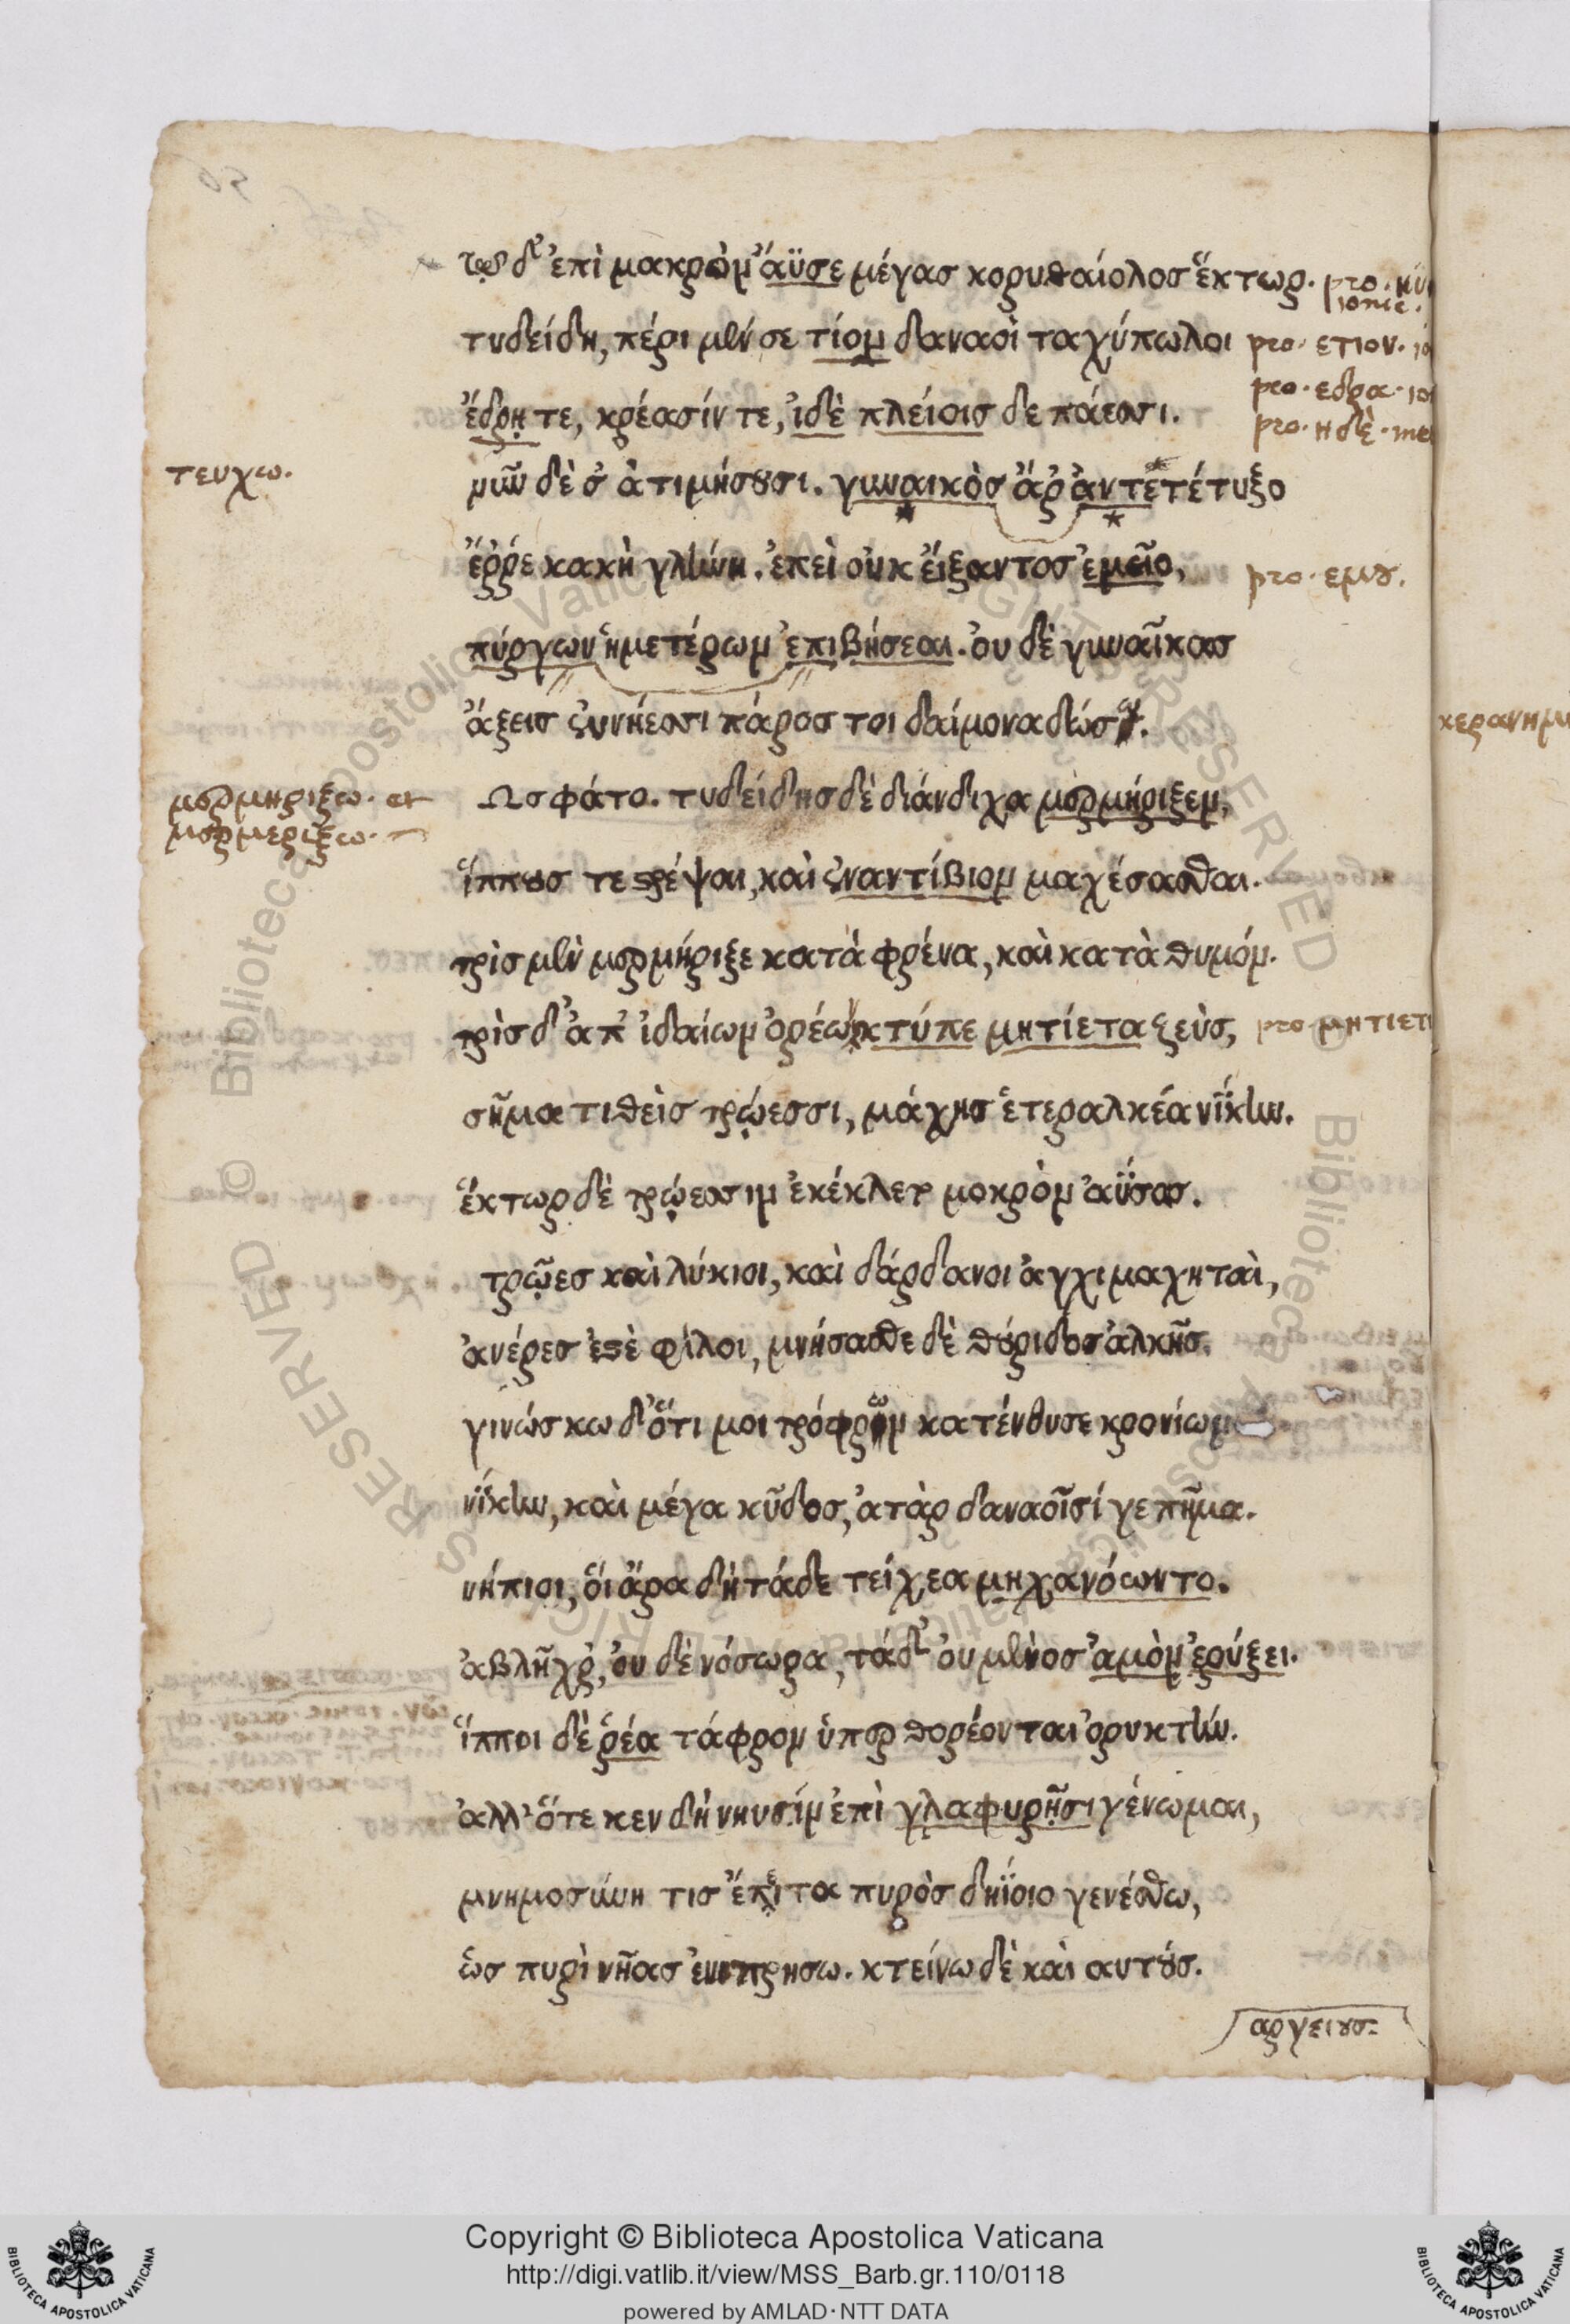 τῷ δ' ἐπὶ μακρὸν ἄϋσε μέγας κορυθαίολος ἕκτωρ. pro. ionic.
τυδείδη, πέρι μὲν σε τίον δαναοὶ ταχύπωλοι pro. ετιον.
ἕδρῃ τε, κρέασίν τε, ἰδὲ πλείοις δεπάεσσι. pro. εδρα.
pro. ηδὲ.
τευχω. νῦν δὲ σ' ἀτιμήσουσι. γυναικὸς ἄρ' ἀντὶ τέτυξο
ἔῤῥε κακὴ γλήνη. ἐπεὶ οὐκ εἴξαντος ἐμεῖο, pro. εμου.
πύργων ἡμετέρων ἐπιβήσεαι. οὐδὲ γυναῖκας
ἄξεις ἐν νήεσσι πάρος τοι δαίμονα δώσω.
μερμηριξω. et Ως φάτο. τυδείδης δὲ διάνδιχα μερμήριξεν,
μερμεριξω.
ἵππους τε στρέψαι, καὶ ἐναντίβιον μαχέσασθαι.
τρὶς μὲν μερμήριξε κατὰ φρένα, καὶ κατὰ θυμόν.
τρὶς δ' ἀπ' ἰδαίων ὀρέων κτύπε μητίετα ζεὺς, pro μητιετ
σῆμα τιθεὶς τρώεσσι, μάχης ἑτεραλκέα νίκην.
ἕκτωρ δὲ τρώεσσιν ἐκέκλετο μακρὸν ἀΰσας.
τρῶες καὶ λύκιοι, καὶ δάρδανοι ἀγχιμαχηταὶ,
ἀνέρες ἐστὲ φίλοι, μνήσασθε δὲ θούριδος ἀλκῆς.
γινώσκω δ' ὅτι μοι πρόφρων κατένευσε κρονίων
νίκην, καὶ μέγα κῦδος, ἀτὰρ δαναοῖσί γε πῆμα.
νήπιοι, οἵ ἄρα δὴ τάδε τείχεα μηχανόωντο.
ἀβλῆχρ', οὐδενόσωρα, τάδ' οὐ μένος ἀμὸν ἐρύξει.
ἵπποι δὲ ῥέα τάφρον ὑπερθορέονται ὀρυκτήν.
ἀλλ' ὅτε κεν δὴ νηυσὶν ἐπὶ γλαφυρῇσι γένωμαι,
μνημοσύνη τις ἔπειτα πυρὸς δηΐοιο γενέσθω,
ὡς πυρὶ νῆας ἐνιπρησω. κτείνω δὲ καὶ αὐτούς.
αργειους:
κερανημι
© Biblioteca Apostolica Vaticana ALL RIGHTS RESERVED
Copyright © Biblioteca Apostolica Vaticana
http://digi.vatlib.it/view/MSS_Barb.gr.110/0118
powered by AMLAD·NTT DATA
BIBLIOTECA APOSTOLICA VATICANA
BIBLIOTECA APOSTOLICA VATICANA